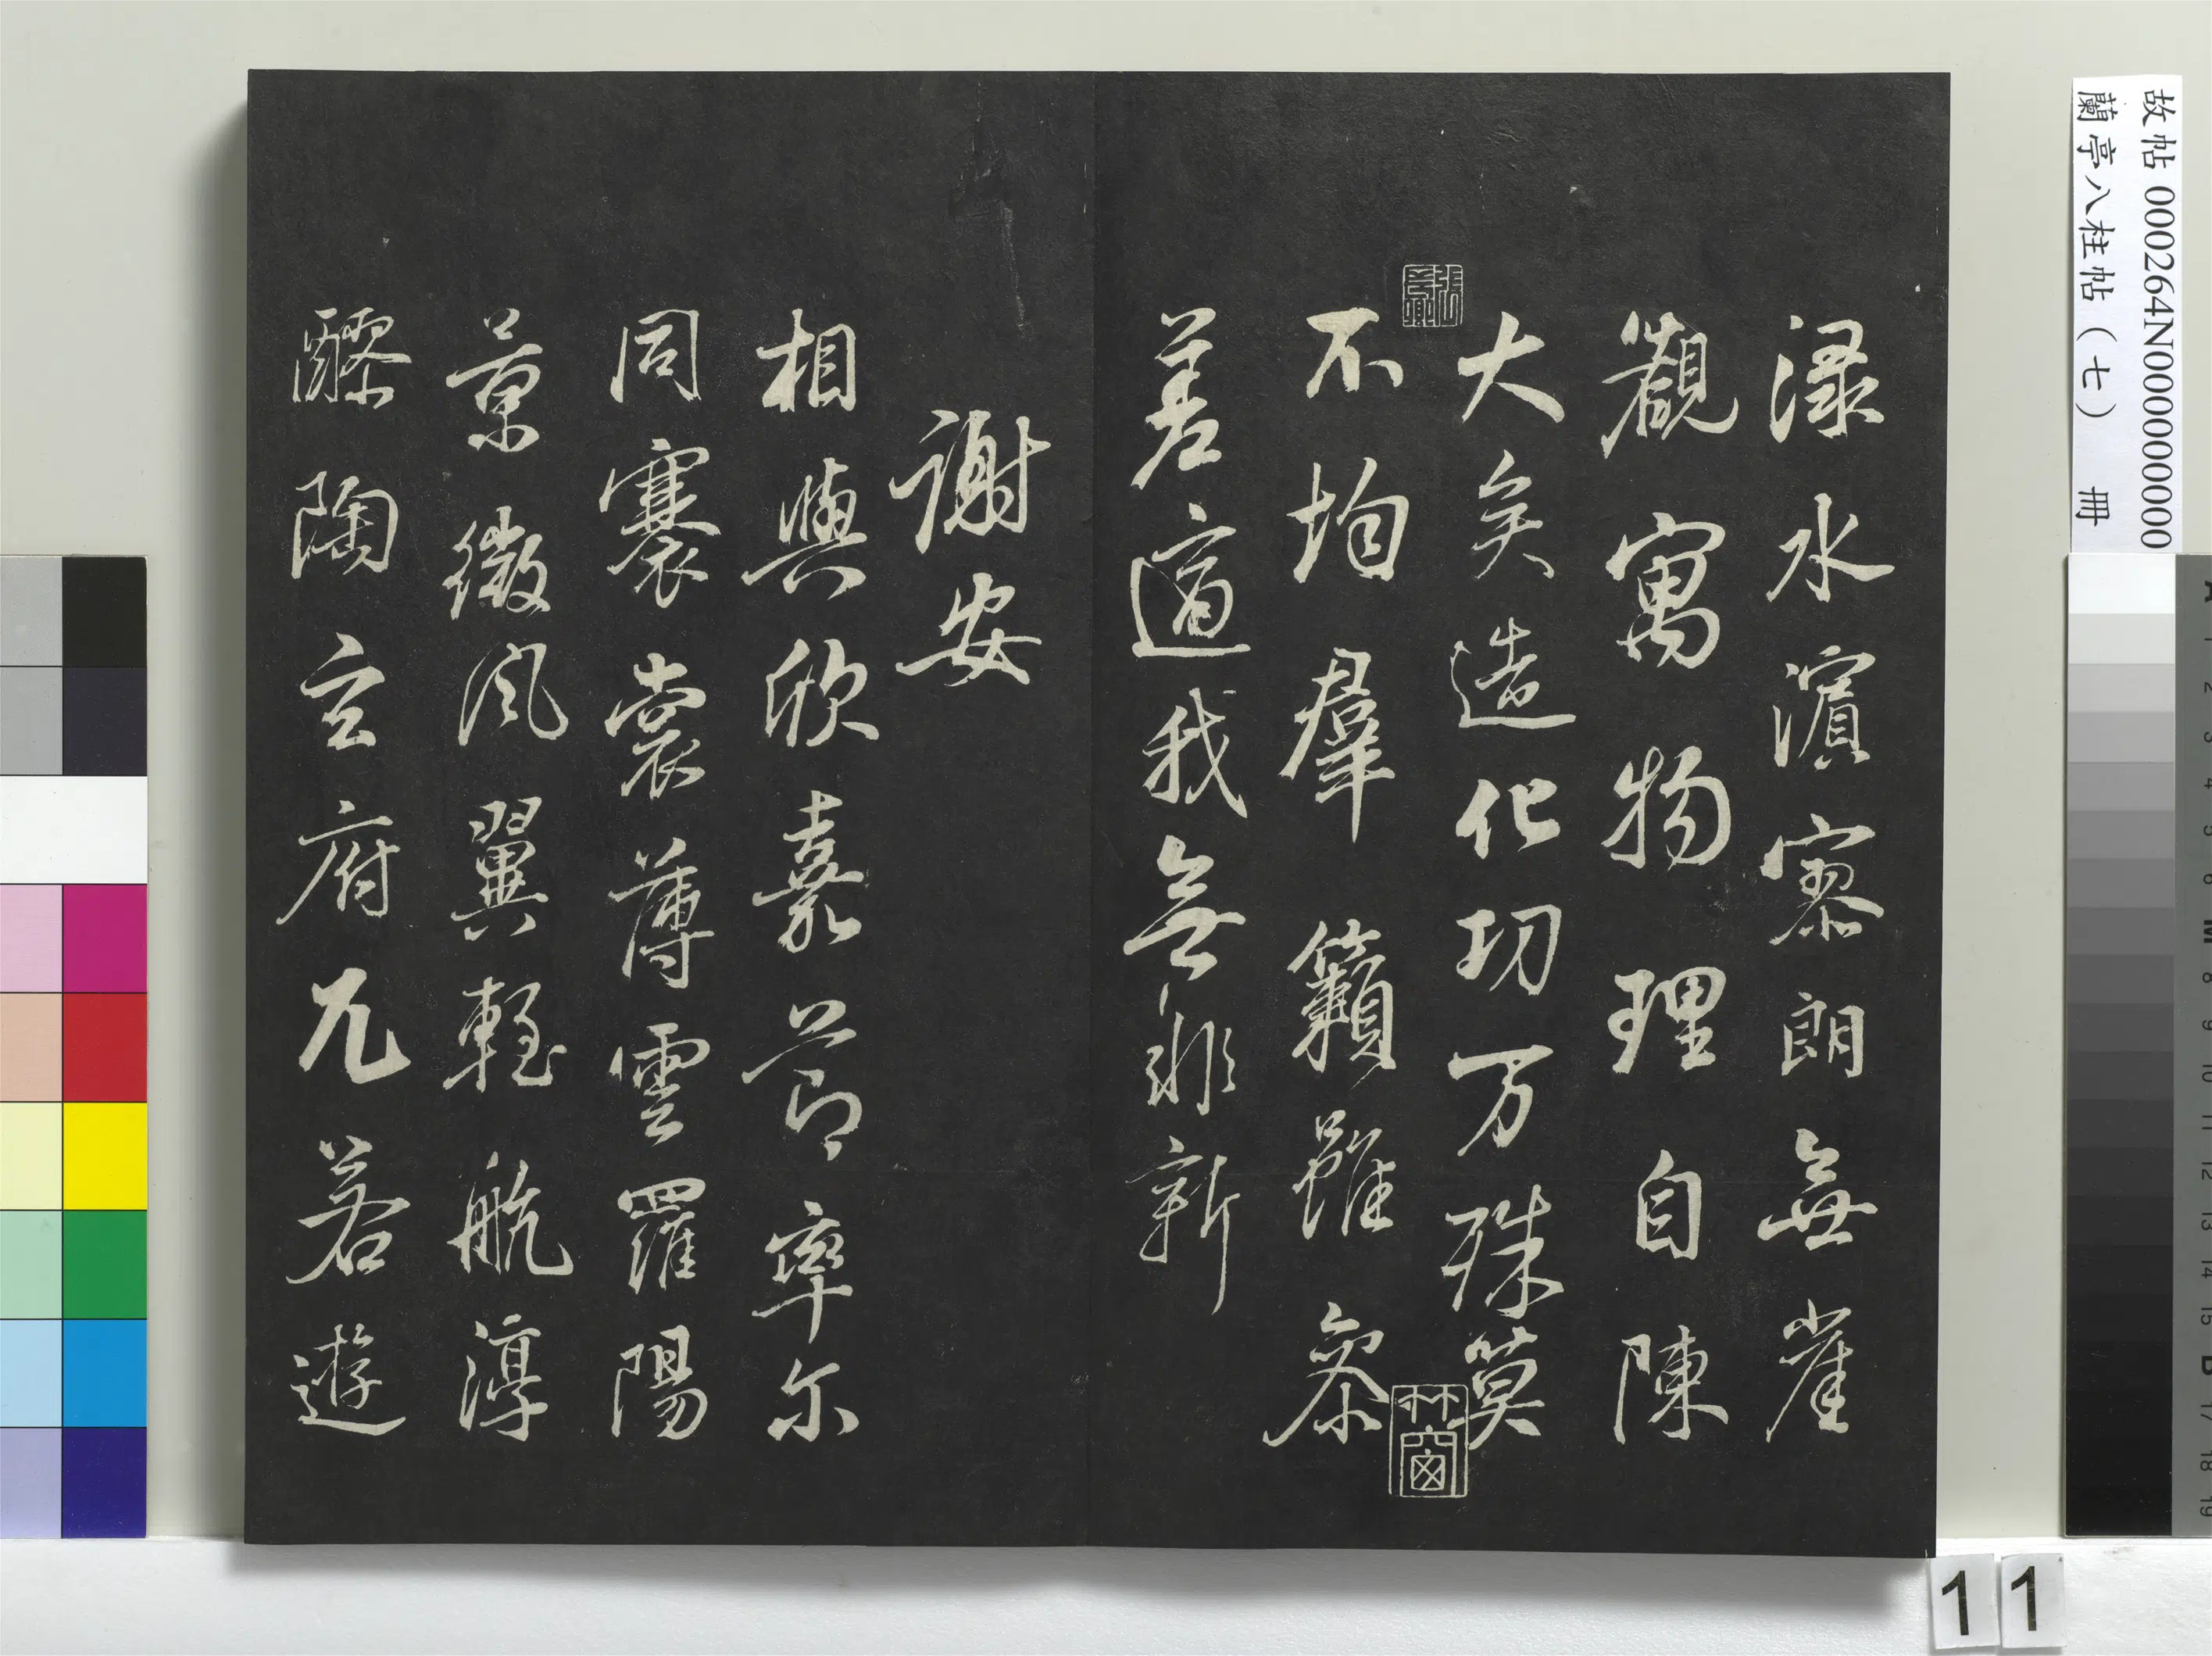 渌水濵寥朗無崖
觀寓物理自陳
大矣造化功万殊莫
不均羣籟雖叅
差適我無非新
謝安
相與欣嘉莭率尔
同褰裳薄雲羅陽
景微風翼輕航淳
醪陶玄府兀若遊
林窗
故帖 000264N000000000
蘭亭八柱帖（七） 冊
11